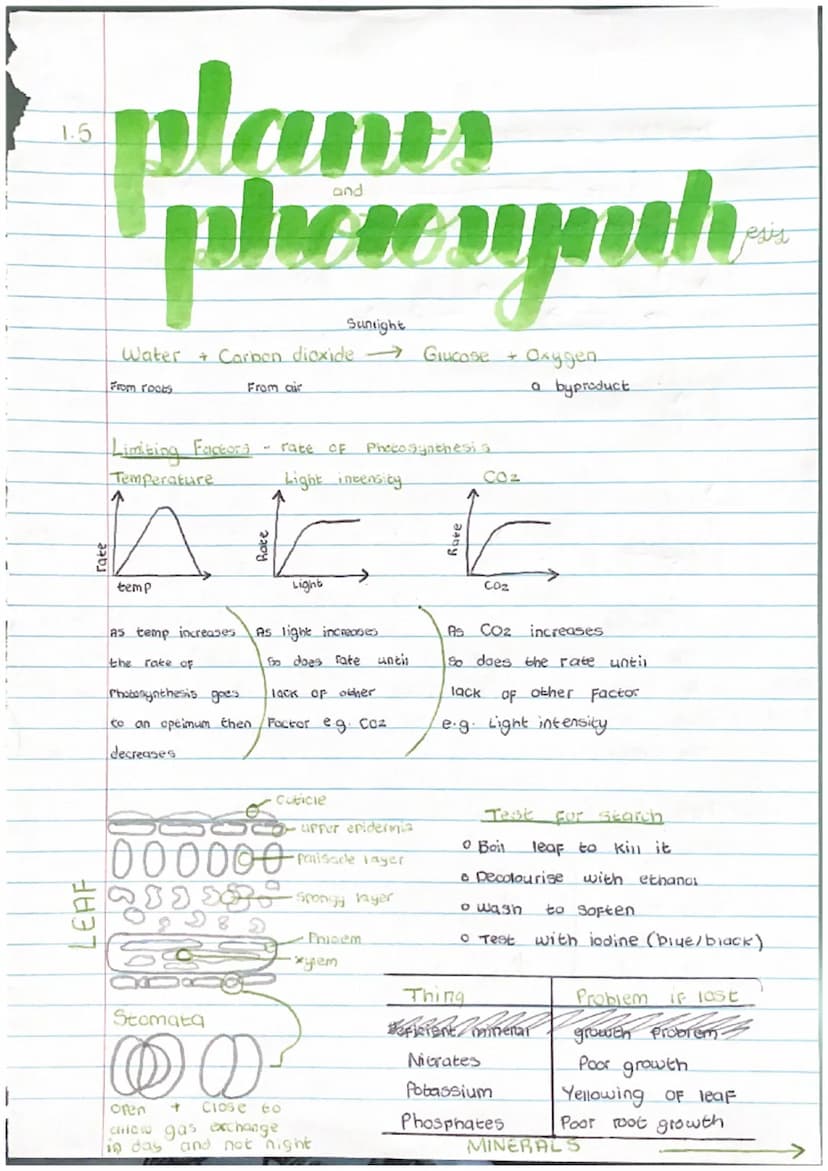 1.5
plants
and
photosynthesis
Sunlight
Water + Carbon dioxide → Glucose + Oxygen
From roots From air a byproduct
Limiting Factors - rate of Photosynthesis
Temperature Light intensity CO2
rate Rate Rate
temp Light CO2
As temp increases As light increases As CO2 increases
the rate of so does rate until so does the rate until
Photosynthesis goes lack of other lack of other Factor
to an optimum then Factor e.g. CO2 e.g. Light intensity
decreases
LEAF
cuticle
upper epidermis
palisade layer
spongy layer
Phloem
xylem
Stomata
open + close to
allow gas exchange
in day and not night
Test for starch
Boil leaf to kill it
Decolourise with ethanol
wash to soften
Test with iodine (blue/black)
Thing Problem if lost
deficient/mineral growth problem
Nitrates Poor growth
Potassium Yellowing of leaf
Phosphates Poor root growth
MINERALS →